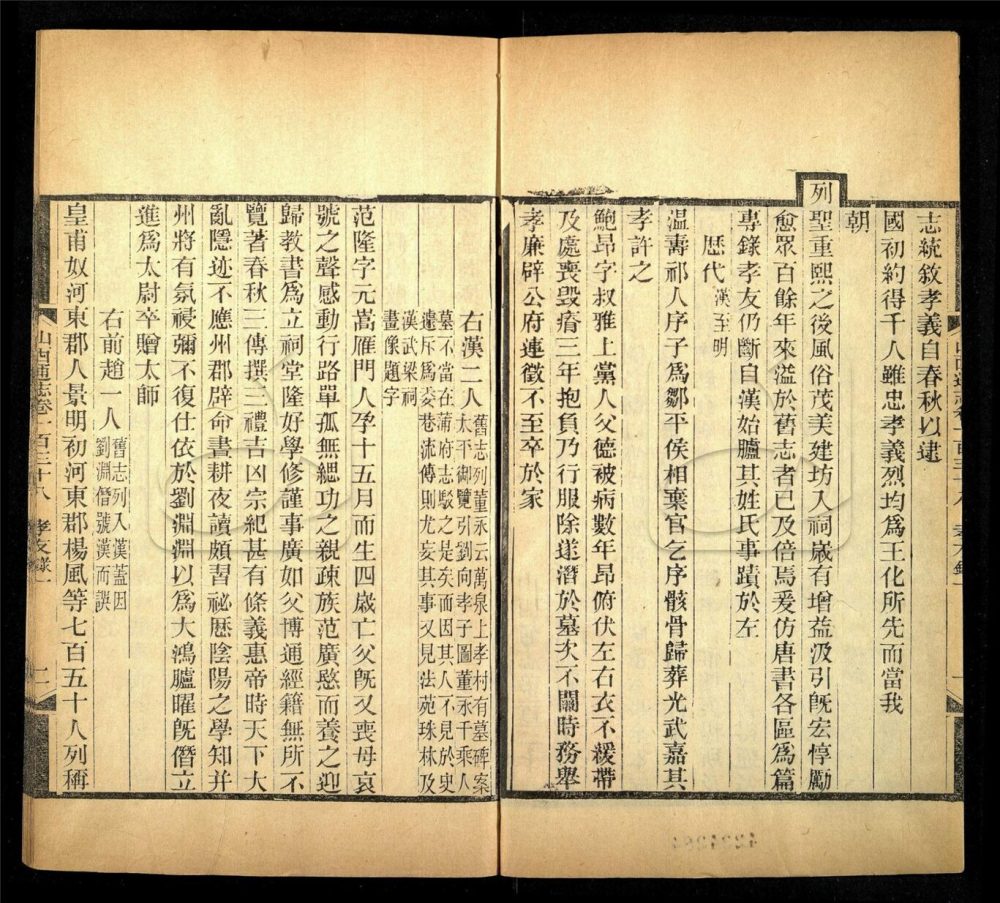 志統敘孝義自春秋以逮
國初約得千人雖忠孝義烈均爲王化所先而當我
朝
列聖重熙之後風俗茂美建坊入祠歲有增益汲引旣宏惇勵
愈眾百餘年來溢於舊志者已及倍焉爰仿唐書各區爲篇
專錄孝友仍斷自漢始臚其姓氏事蹟於左
歷代漢至明
溫壽祁人序子爲鄒平侯相棄官乞序骸骨歸葬光武嘉其
孝許之
鮑昂字叔雅上黨人父德被病數年昂俯伏左右衣不緩帶
及處喪毀瘠三年抱負乃行服除遂潛於墓次不關時務舉
孝廉辟公府連徵不至卒於家
右漢二人舊志列董永云萬泉上孝村有墓碑案
太平御覽引劉向孝子圖董永千乘人
墓不當在蒲府志駁之是矣而因其人不見於史
遽斥爲委巷流傳則尤妄其事又見法苑珠林及
漢武梁祠
畫像題字
范隆字元嵩雁門人孕十五月而生四歲亡父旣又喪母哀
號之聲感動行路單孤無緦功之親疎族范廣愍而養之迎
歸教書爲立祠堂隆好學修謹事廣如父博通經籍無所不
覽著春秋三傳撰三禮吉凶宗紀甚有條義惠帝時天下大
亂隱迹不應州郡辟命晝耕夜讀頗習祕歷陰陽之學知并
州將有氛祲彌不復仕依於劉淵淵以爲大鴻臚曜旣僭立
進爲太尉卒贈太師
右前趙一人舊志列入漢蓋因
劉淵僭號漢而誤
皇甫奴河東郡人景明初河東郡楊風等七百五十人列稱
山西通志卷一百三十八 孝友錄一 二